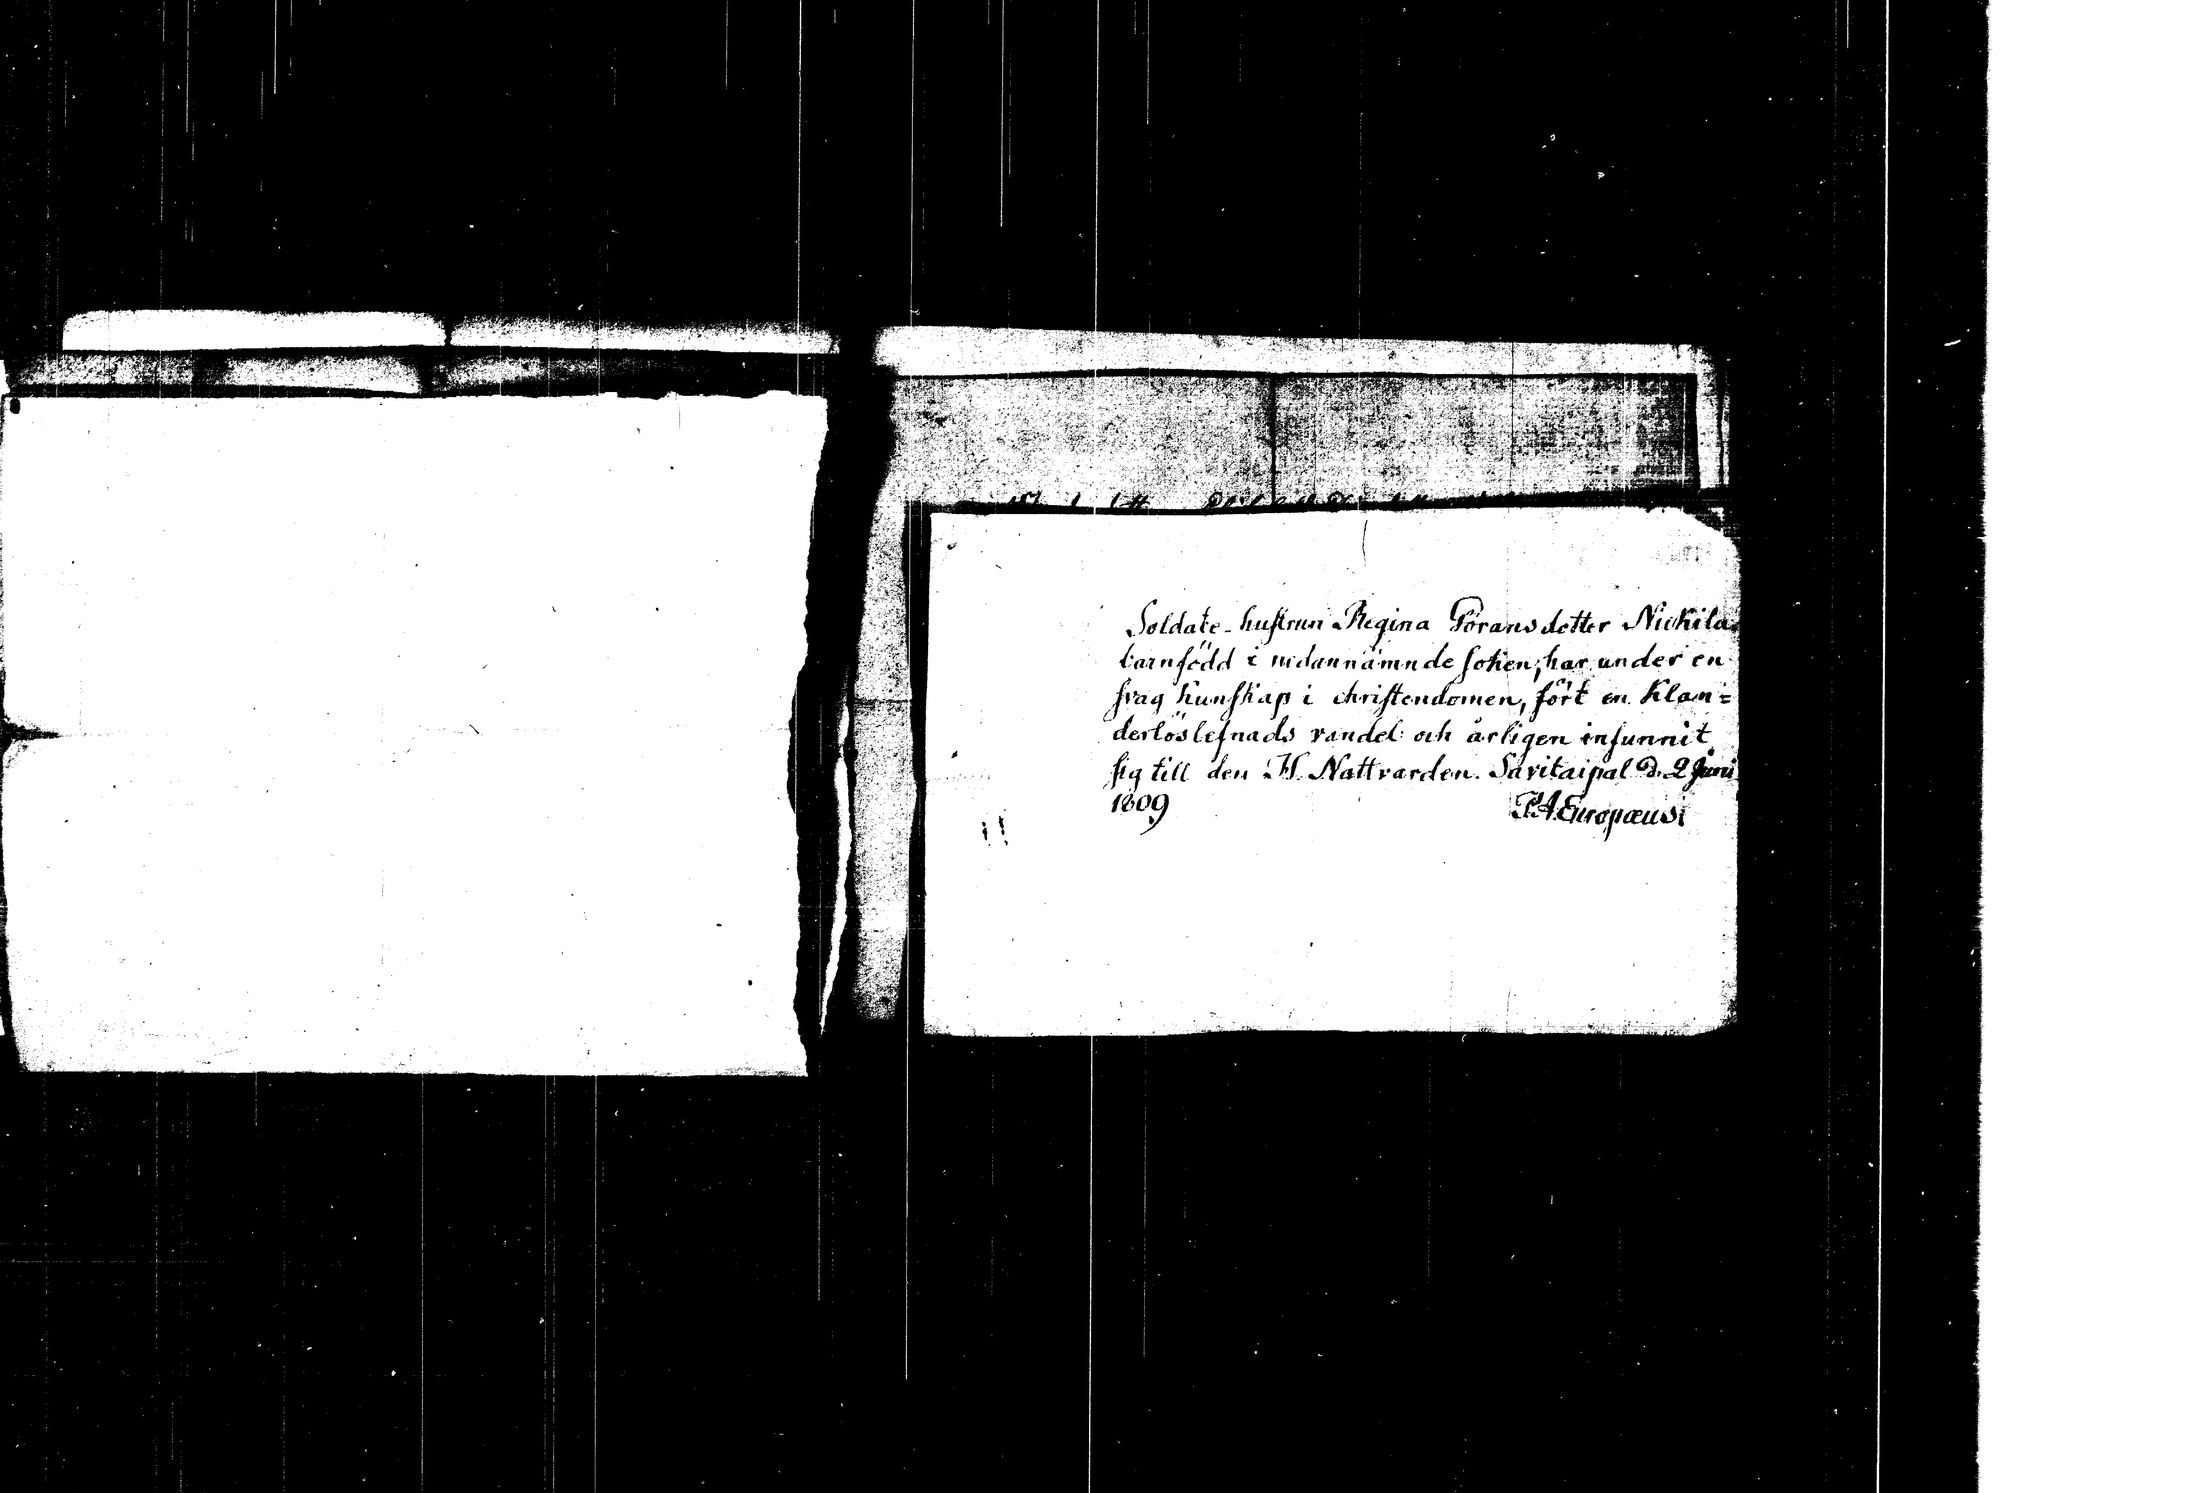 Soldate-hustrun Regina Göransdotter Nickila
barnfödd i nedannämnde soken, har under en
svag kunskap i christendomen, fört en klan=
derlös lefnads vandel och årligen infunnit
sig till den H. Nattvarden. Savitaipal D. 2 Juni
1809
P.A. Europæus